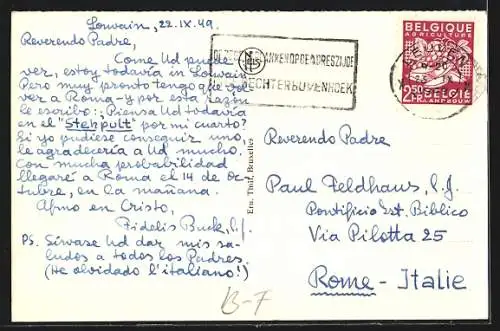 Louvain, 22.IX.49.
Reverendo Padre,
Como Ud puede
ver, estoy todavía en Louvain
Pero muy pronto tengo que vol-
ver a Roma - y por esta razón
le escribo: ¿Piensa Ud todavía
en el "Stehpult" por mi cuarto?
Si yo pudiese conseguir uno,
le agradecería a Ud mucho.
Con mucha probabilidad
llegaré a Roma el 14 de oc-
tubre, en la mañana.
Afmo en Cristo,
Fidelis Buck, s.f.
PS. Sírvase Ud dar mis sa-
ludos a todos los Padres.
(He olvidado l'italiano!)
Ern. Thill, Bruxelles
ADRESZIJDE
RECHTERBOVENHOEK
BELGIQUE
AGRICULTURE
2,50
BELGIE
LANDBOUW
Reverendo Padre
Paul Feldhaus, s.f.
Pontificio Ist. Biblico
Via Pilotta 25
Rome - Italie
B-F